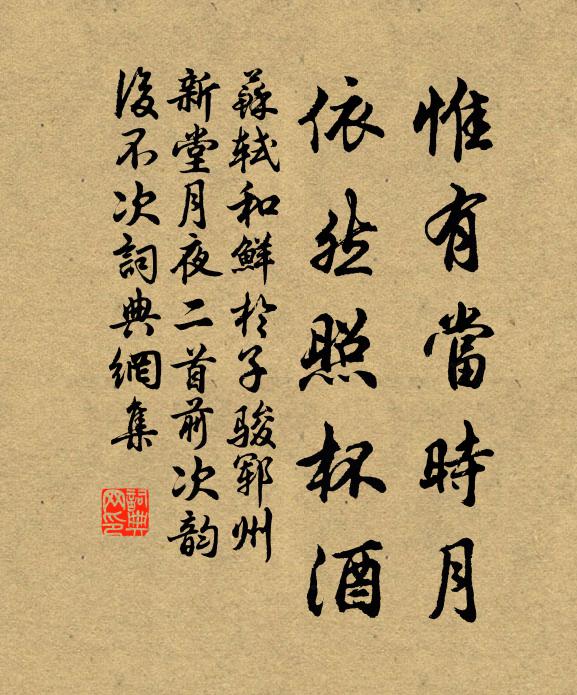 惟有當時月
依然照杯酒
蘇軾和鮮於子駿鄆州
新堂月夜二首前次韵
後不次詞典網集
詞典
网印